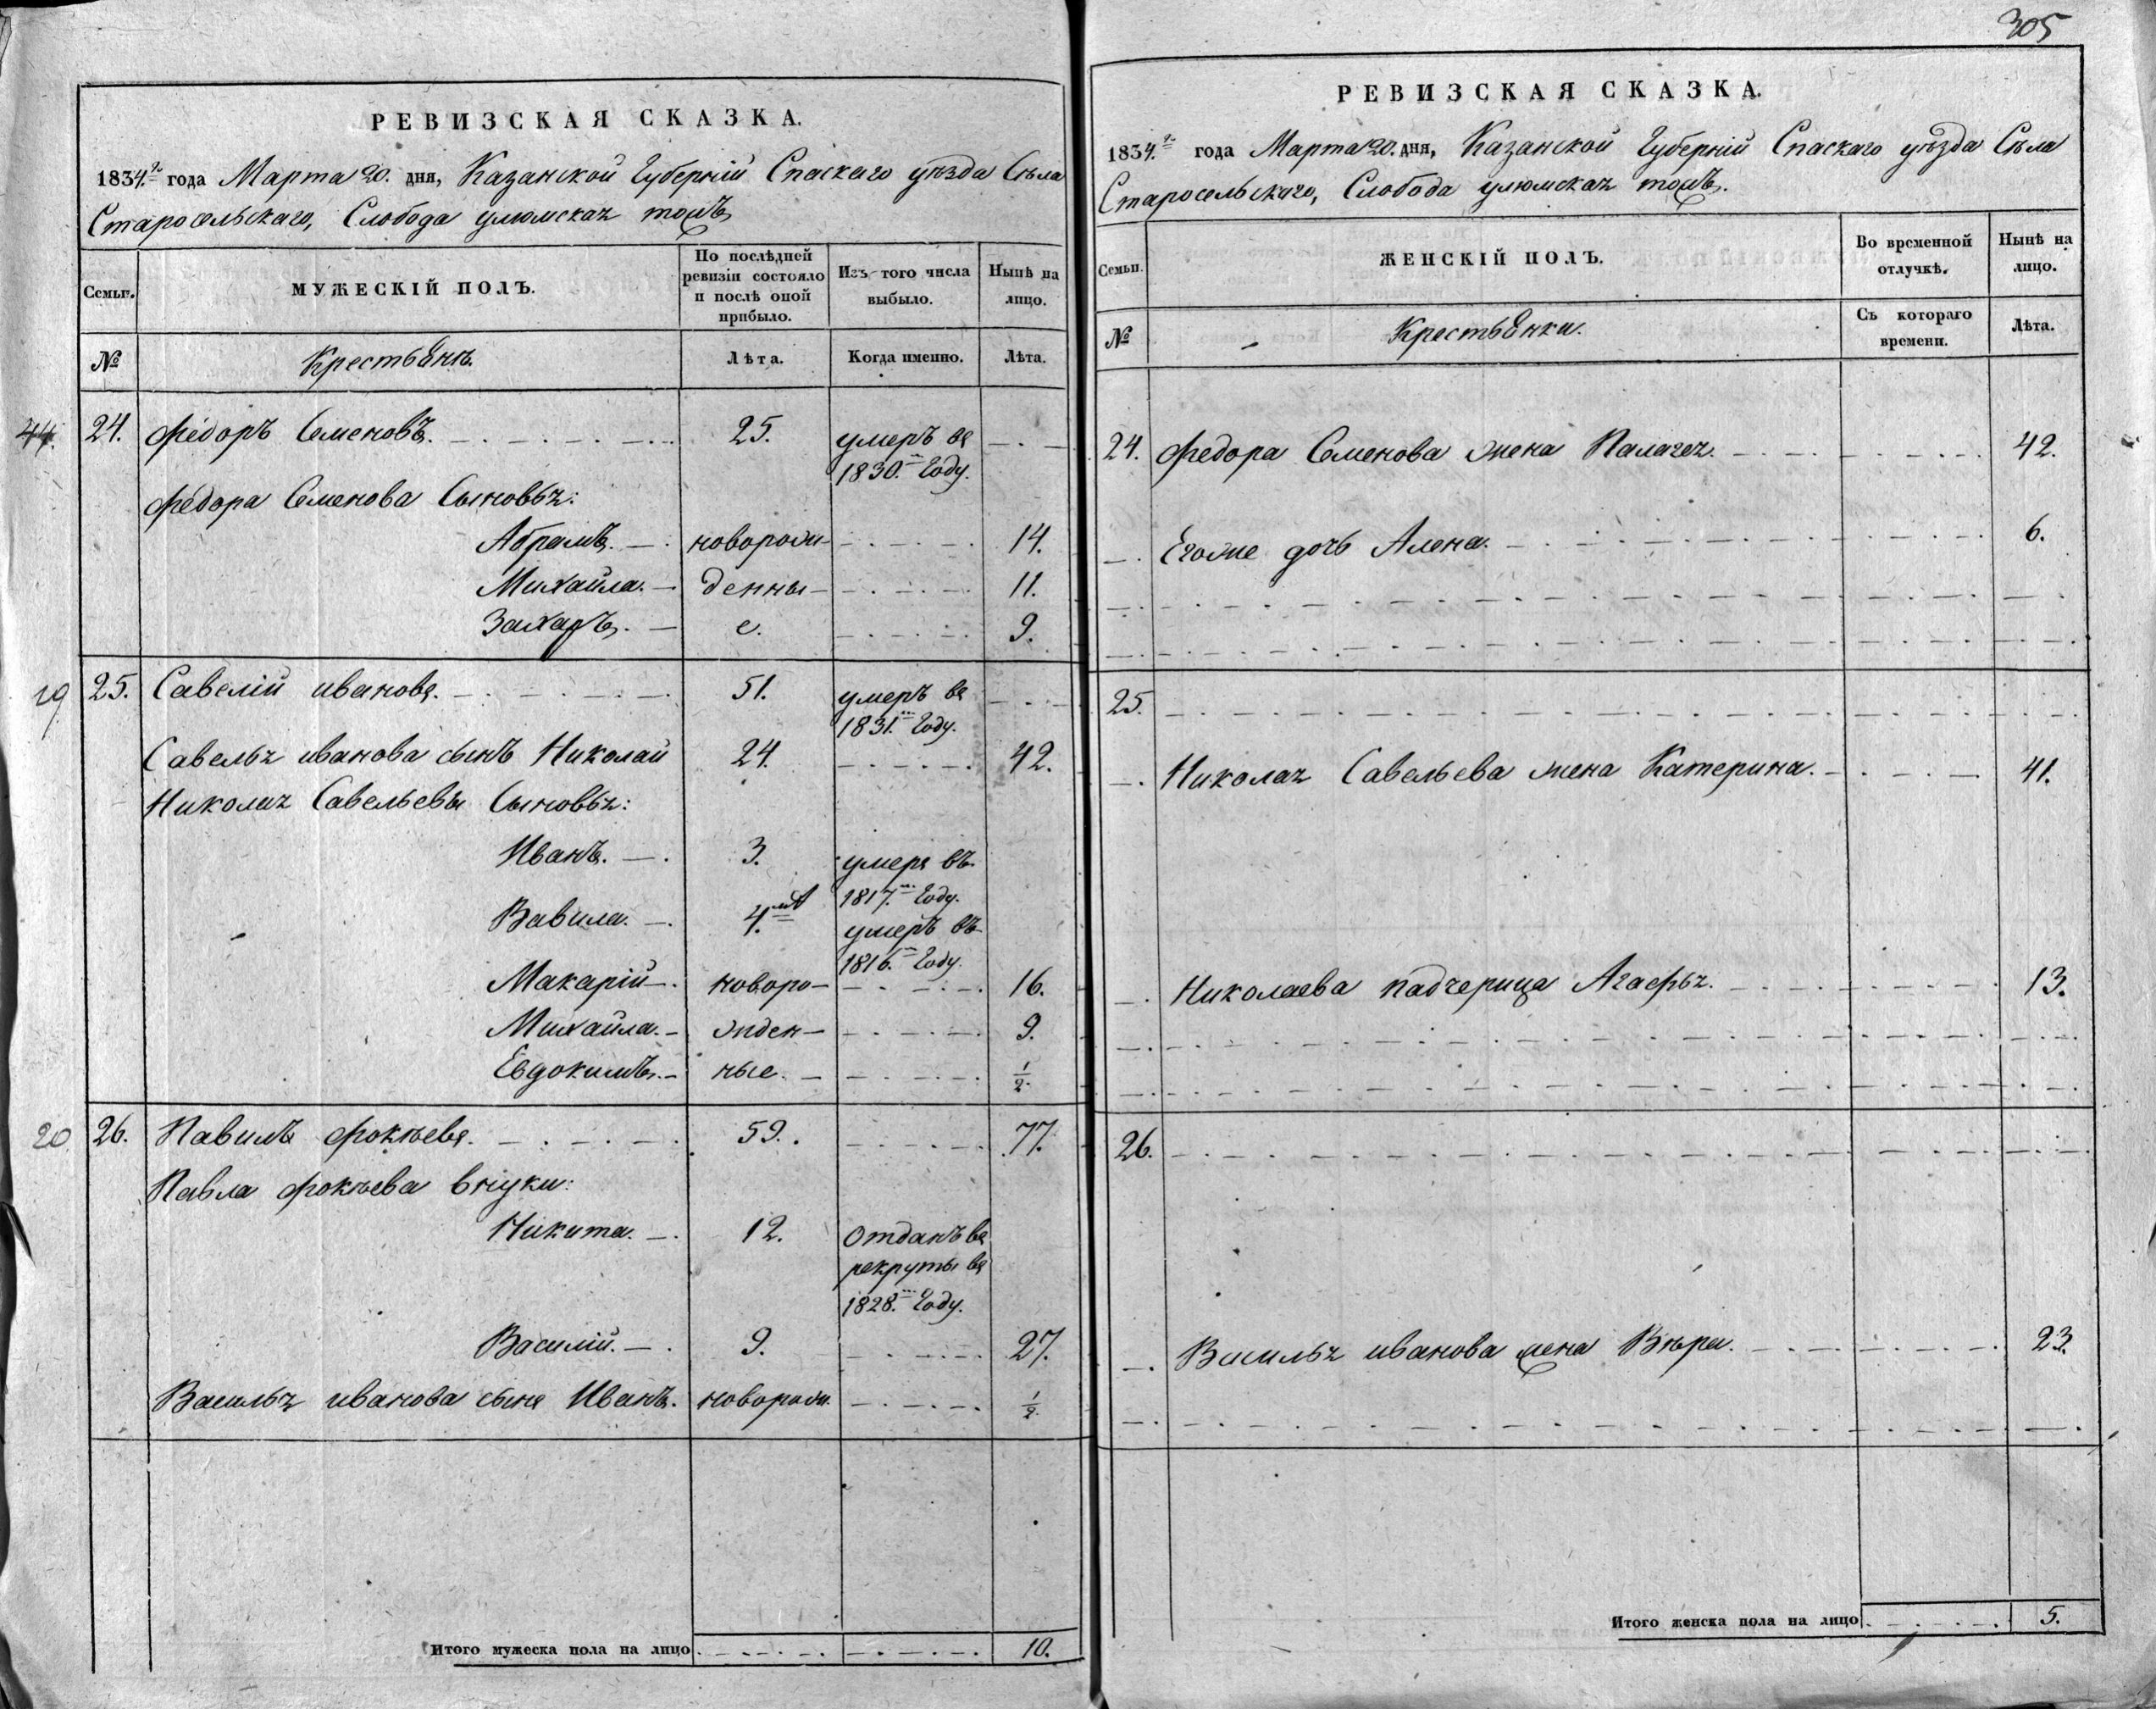 305
РЕВИЗСКАЯ СКАЗКА.
1834.го года Марта 20. дня, Казанской Губерніи Спаскаго уѣзда Села
Старосельскаго, Слобода тожъ
Семьи. МУЖЕСКІЙ ПОЛЪ. По послѣдней ревизіи состояло и послѣ оной прибыло. Изъ того числа выбыло. Нынѣ на лицо.
№ Крестьянъ. Лѣта. Когда именно. Лѣта.
44. 24. Федоръ Семеновъ. 25. умеръ въ
1830.м Году.
Федора Семенова Сыновья:
Абрамъ. новорож 14.
Михайла. денны 11.
Захаръ. е. 9.
19 25. Савелій ивановъ. 51. умеръ въ
1831.м Году.
Савелья иванова сынъ Николай 24. 42.
Николая Савельевы Сыновья:
Иванъ. 3. умеръ въ
1817.м Году.
Вавила. 4. умеръ въ
1816.м Году.
Макарій новоро 16.
Михайла. жден 9.
Евдокимъ. ные. 1/2.
20 26. Павилъ Фокѣевъ. 59. 77.
Павла Фокѣева внуки:
Никита. 12. Отданъ въ
рекруты въ
1828.м Году.
Василій. 9. 27.
Василья иванова сынъ Иванъ. новорож. 1/2.
Итого мужеска пола на лицо 10.
РЕВИЗСКАЯ СКАЗКА.
1834.го года Марта 20. дня, Казанской Губерніи Спаскаго уѣзда Села
Старосельскаго, Слобода тожъ.
Семьи. ЖЕНСКІЙ ПОЛЪ. Во временной отлучкѣ. Нынѣ на лицо.
№ Крестьянки. Съ котораго времени. Лѣта.
24. Федора Семенова жена Палагея. 42.
Егоже дочь Алена. 6.
25.
Николая Савельева жена Катерина. 41.
Николаева падчерица Агафья. 13.
26.
Василья иванова жена Вѣра. 23.
Итого женска пола на лицо 5.